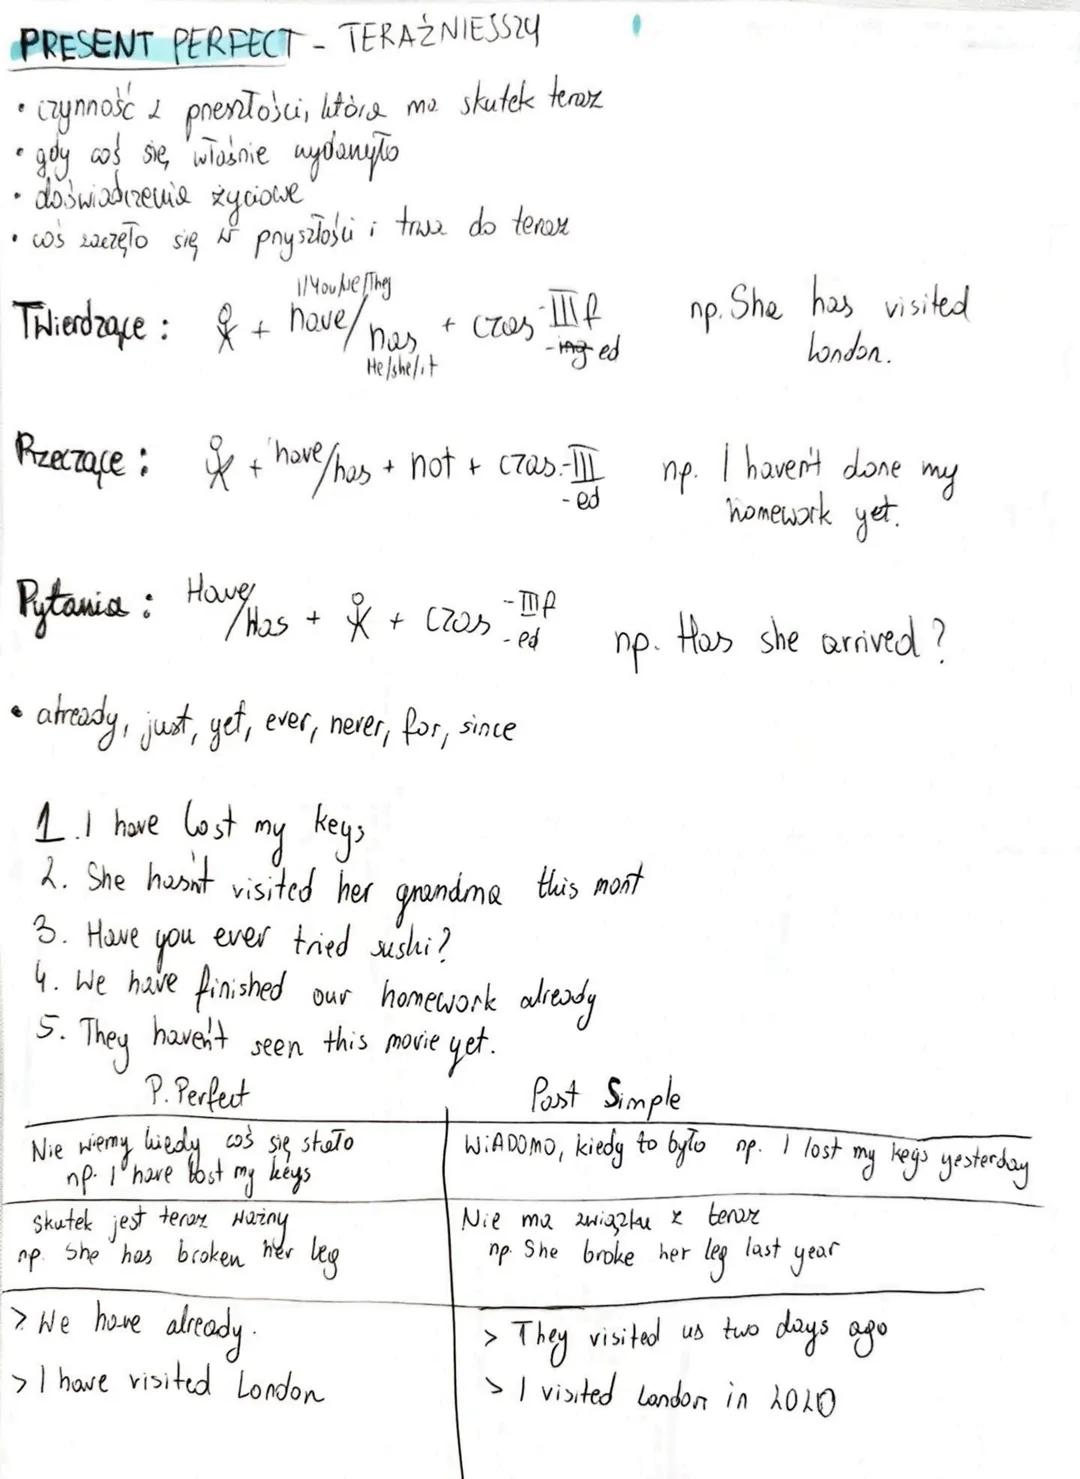 PRESENT PERFECT - TERAŹNIEJSZY
• czynność z przeszłości, która ma skutek teraz
• gdy coś się właśnie wydarzyło
• doświadczenie życiowe
• coś zaczęło się w pryszłości i trwa do teraz
I/You/We/They
Twierdzące : + have/has + czas -III f np. She has visited
He/she/it -ing ed London.
Przeczące : + have/has + not + czas -III np. I haven't done my
-ed homework yet.
Pytania : Have/Has + + czas -III f np. Has she arrived?
-ed
• already, just, yet, ever, never, for, since
1. I have lost my keys
2. She hasn't visited her grandma this mont
3. Have you ever tried sushi?
4. We have finished our homework already
5. They haven't seen this movie yet.
P. Perfect Past Simple
Nie wiemy kiedy coś się stało
np. I have lost my keys
WIADOMO, kiedy to było np. I lost my keys yesterday
Skutek jest teraz ważny
np. She has broken her leg
Nie ma związku z teraz
np. She broke her leg last year
> We have already.
> I have visited London
> They visited us two days ago
> I visited London in 2020